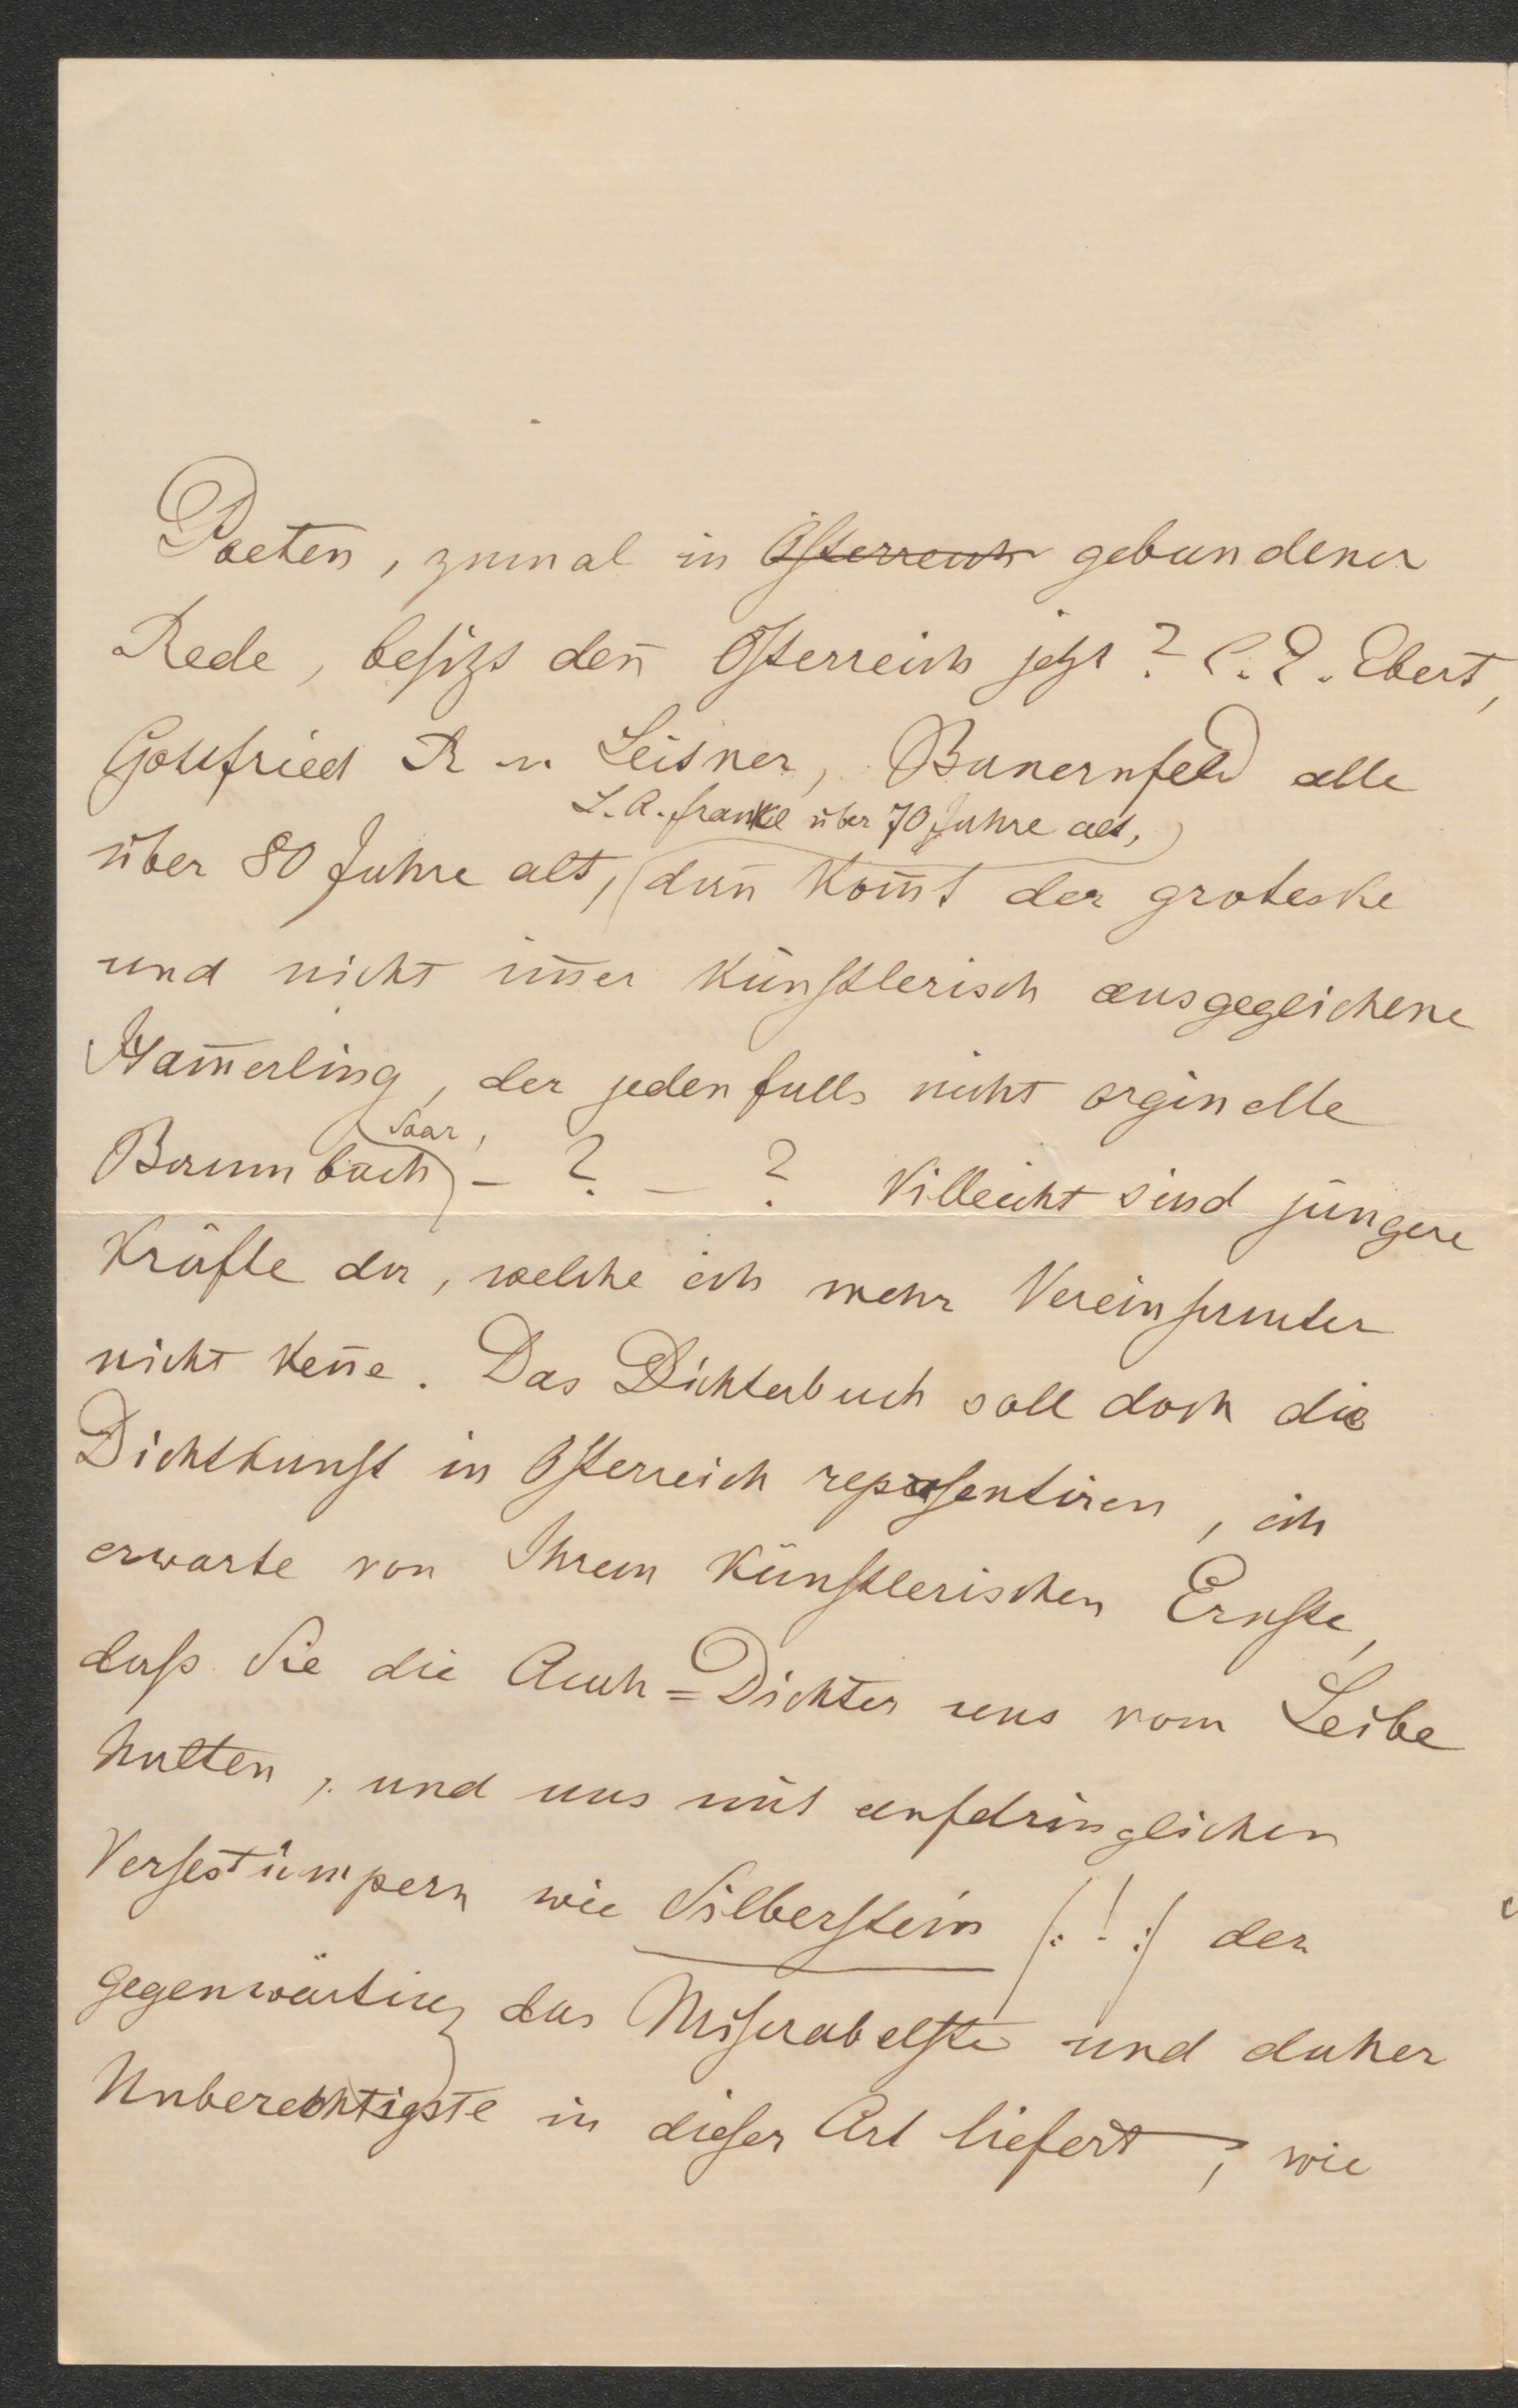 Poeten, zumal in Österreich gebundener
Rede, besitzt den̄ Österreich jetzt? C. E. Ebert,
Gottfried R v. Leitner, Bauernfeld alle
L. A. Frankl über 70 Jahre alt,
über 80 Jahre alt, dan̄ kom̄t der groteske
und nicht im̄er künstlerisch ausgeglichene
Ham̄erling, der jedenfalls nicht orginelle
Saar,
Baumbach – ? – ? Villeicht sind jüngere
Kräfte da, welche ich mehr Vereinsamter
nicht ken̄e. Das Dichterbuch soll doch die
Dichtkunst in Österreich repräsentiren, ich
erwarte von Ihrem künstlerischen Ernste,
daß Sie die Auch=Dichter uns vom Leibe
halten, und uns mit aufdringlichen
Versestümpern wie Silberstein /: ! :/ der
gegenwärtig das Miserabelste und daher
Unberechtigste in dieser Art liefert, wie